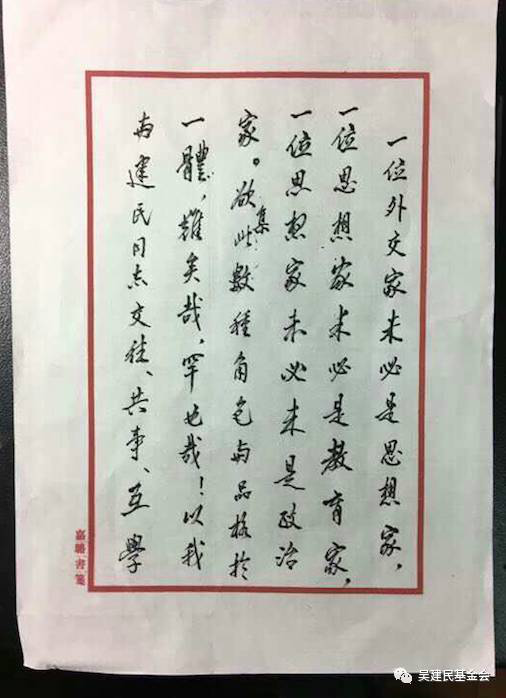 一位外交家未必是思想家，
一位思想家未必是教育家，
一位思想家未必未是政治
家。欲集此數種角色与品格於
一體，難矣哉，罕也哉！以我
与建民同志交往、共事、互學
書箋
吴建民基金会